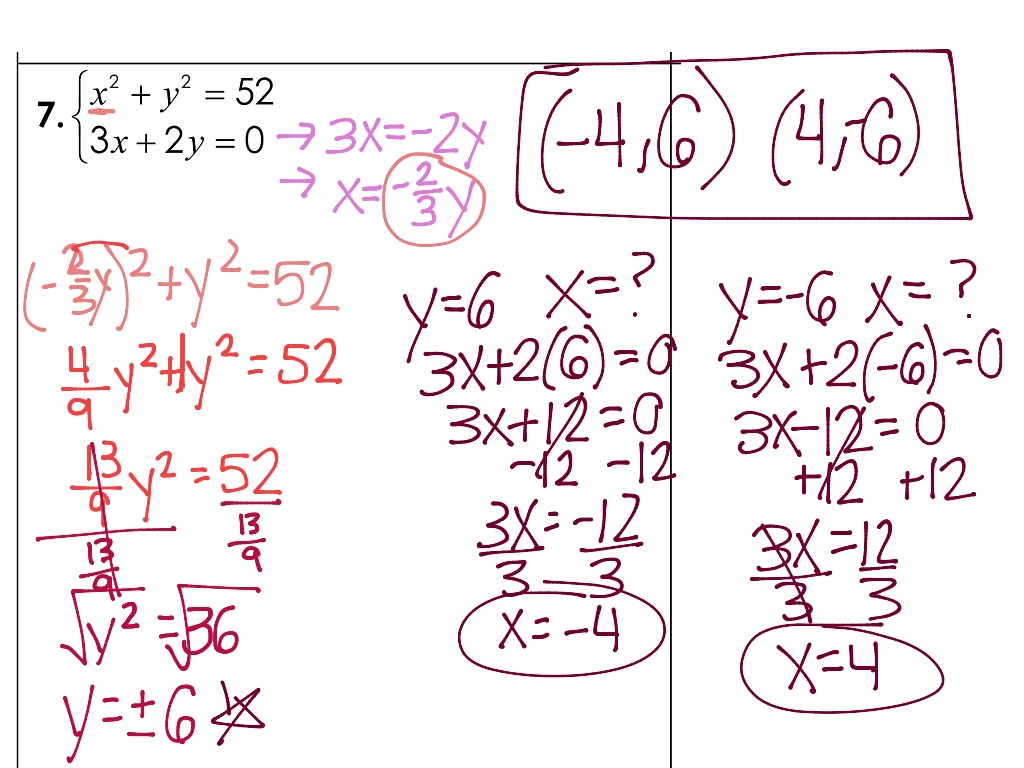 7. { x² + y² = 52
3x + 2y = 0 → 3x = -2y
→ x = -2/3 y
(-4, 6) (4, -6)
(-2/3 y)² + y² = 52
4/9 y² + 1y² = 52
13/9 y² = 52
13/9 13/9
√y² = √36
y = ± 6 ☆
y = 6 x = ?
3x + 2(6) = 0
3x + 12 = 0
-12 -12
3x = -12
3 3
x = -4
y = -6 x = ?
3x + 2(-6) = 0
3x - 12 = 0
+12 +12
3x = 12
3 3
x = 4